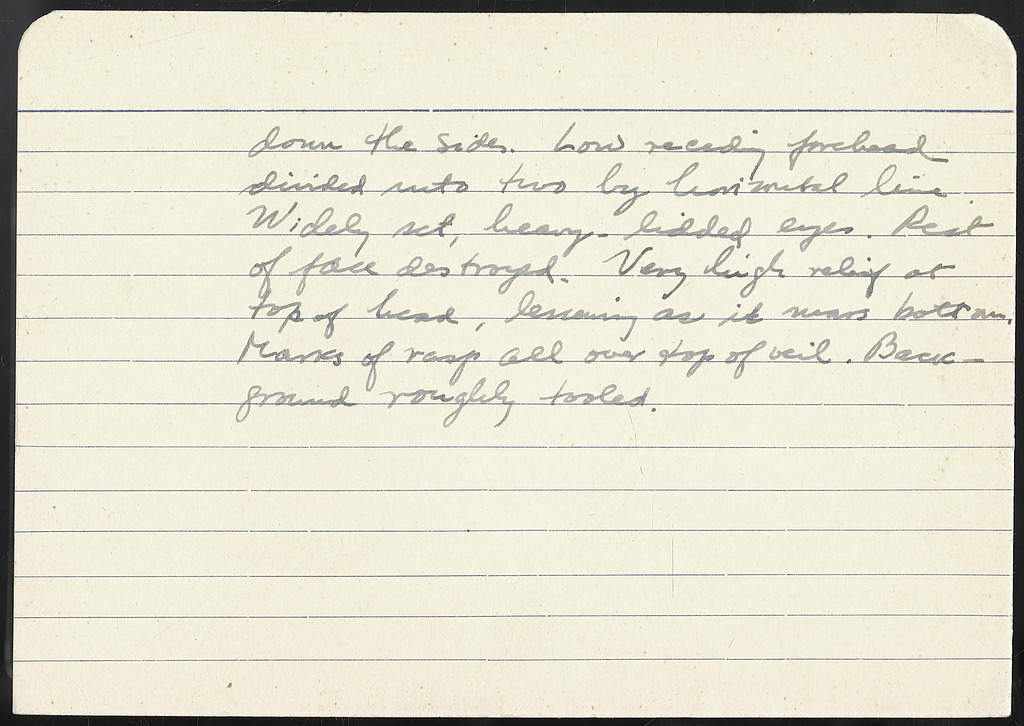 down the sides. Low receding forehead
divided into two by horizontal line.
Widely set, heavy-lidded eyes. Rest
of face destroyed. Very high relief at
top of head, lessening as it nears bottom.
Marks of rasp all over top of veil. Back-
ground roughly tooled.